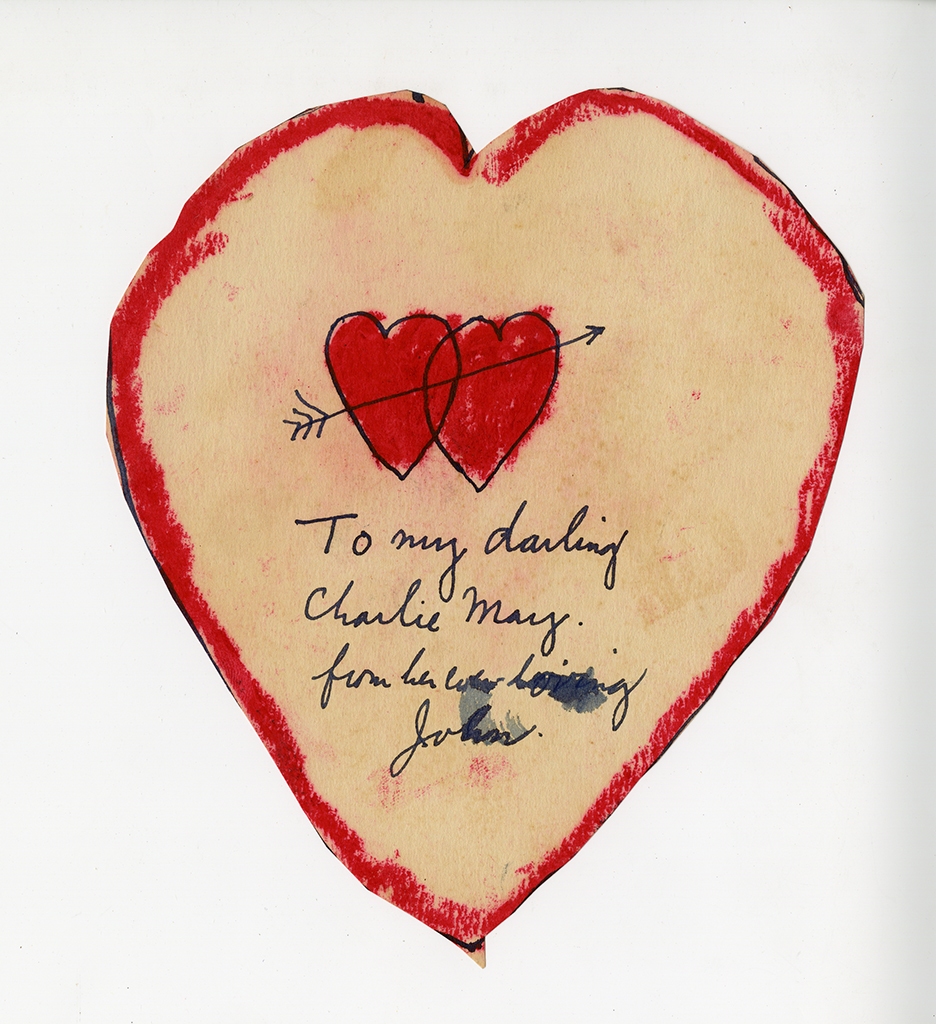 To my darling
Charlie Mary.
from her ever loving
John.